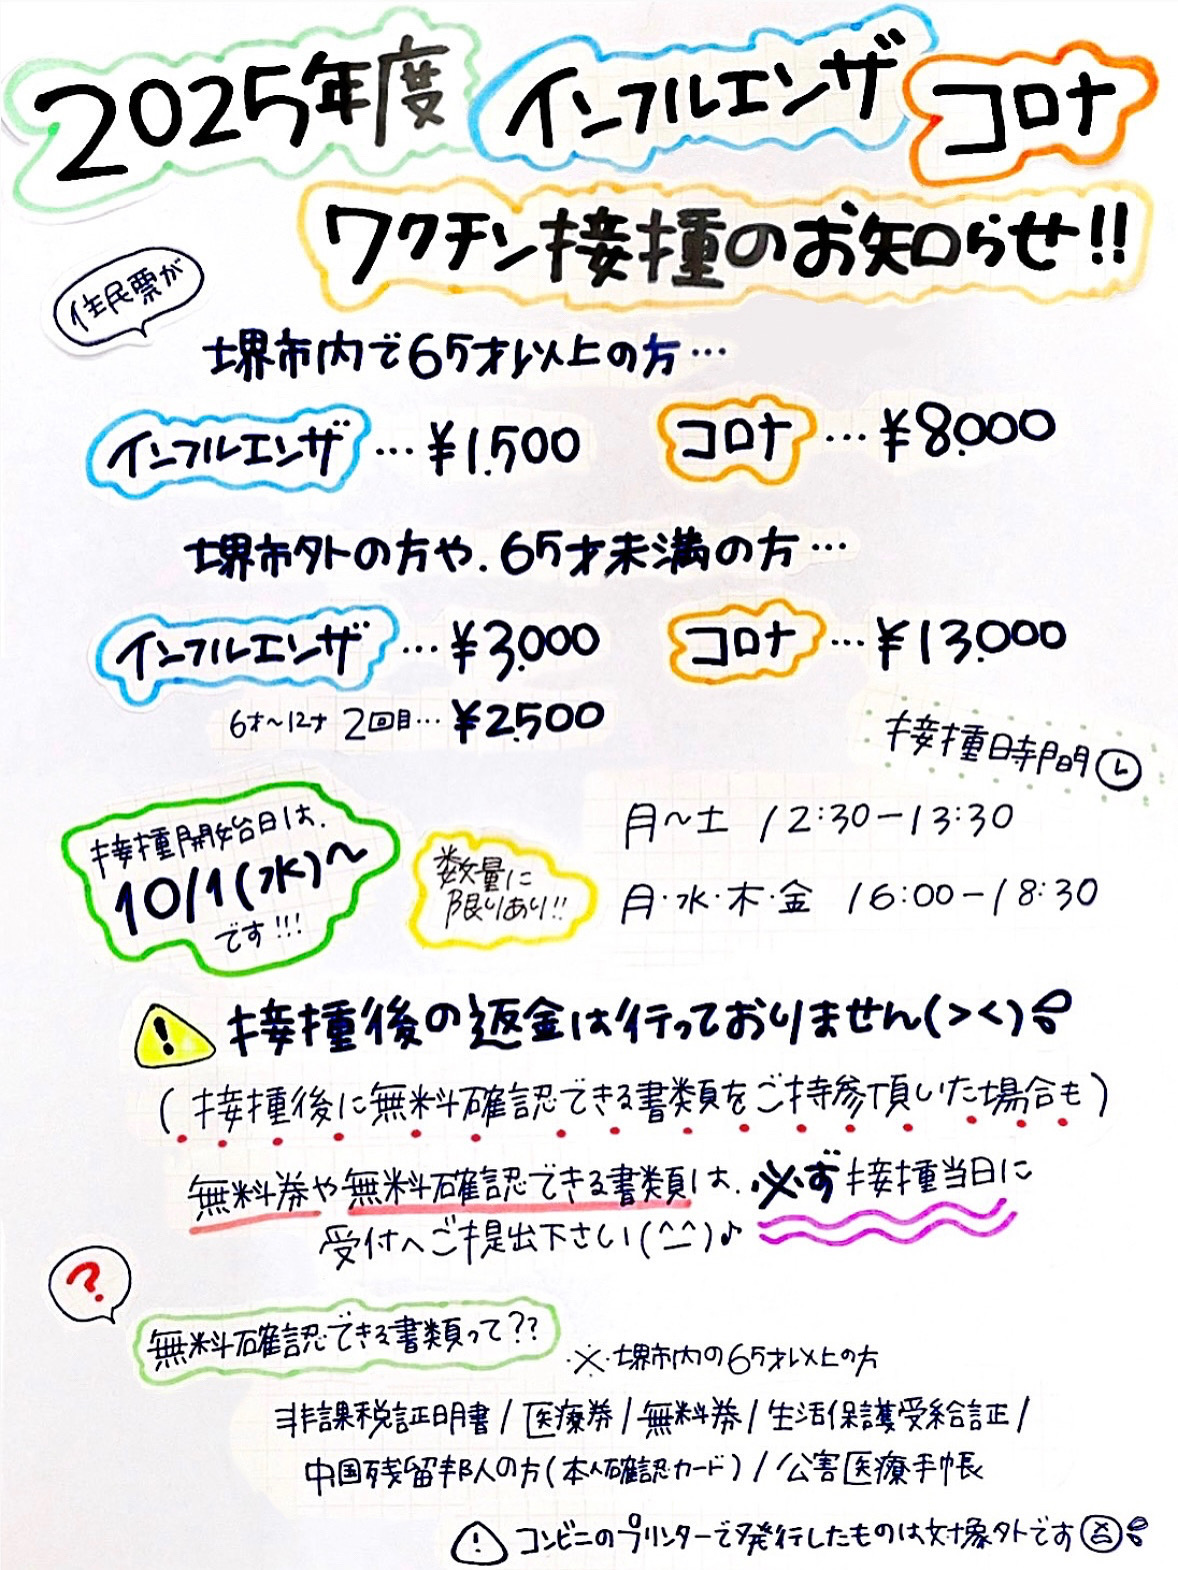 2025年度 インフルエンザ コロナ
ワクチン接種のお知らせ!!
住民票が
堺市内で65才以上の方…
インフルエンザ…¥1.500 コロナ…¥8.000
堺市外の方や、65才未満の方…
インフルエンザ…¥3.000 コロナ…¥13.000
6才〜12才 2回目…¥2.500
接種時間
接種開始日は、
10/1(水)〜
です!!!
数量に
限りあり!!
月〜土 12:30-13:30
月・水・木・金 16:00-18:30
接種後の返金は行っておりません(><)
(接種後に無料確認できる書類をご持参頂いた場合も)
無料券や無料確認できる書類は、必ず接種当日に
受付へご提出下さい(^^)♪
?
無料確認できる書類って??
※堺市内の65才以上の方
非課税証明書/医療券/無料券/生活保護受給証/
中国残留邦人の方(本人確認カード)/公害医療手帳
コンビニのプリンターで発行したものは対象外です